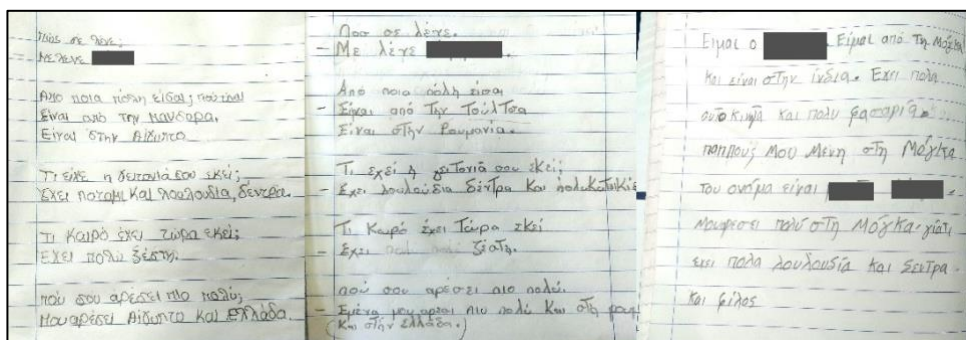 Πως σε λένε;
Με λενε
Απο ποια πόλη είσαι;
Είναι από την Μανσορα.
Είναι στην Αίδυπτο
Τι είχε η δειτονιά σου εκεί;
Εχει ποταμι και λουλουδια, δεντρα.
Τι καιρό έχει τώρα εκεί;
Εχει πολύ ξέστη.
πού σου αρέσει πιο πολύ;
Μου αρέσει Αίδυπτο και Ελλάδα.
Ποσ σε λένε.
- Με λένε
Από ποια πόλη εισαι
- Είμαι από Την Τούλτσα
Είναι στην Ρουμανία.
Τι εχεί ή γειτονιά σου εκεί;
- Εχει λουλούδια δέντρα και πολυκατικίε
Τι Καιρό έχει Τώρα εκεί
- Εχει ζέστη.
πού σου αρέσει πιο πολύ.
- Εμένα μου αρεσι πιο πολύ και στη ρουμ
(και στήν ελλάδα.)
Ειμαι ο Είμαι από Τη Μόγκα
και είναι στην ίνδια. Εχει πολα
αυτοκινητα και πολυ φασαρία.
παππούς μου μενη στη Μόγκα
Του ονόμα είναι
μου αρεσει πολύ στη Μόγκα γιάτι
εχει πολα λουλουδία και δεντρα
και φίλος